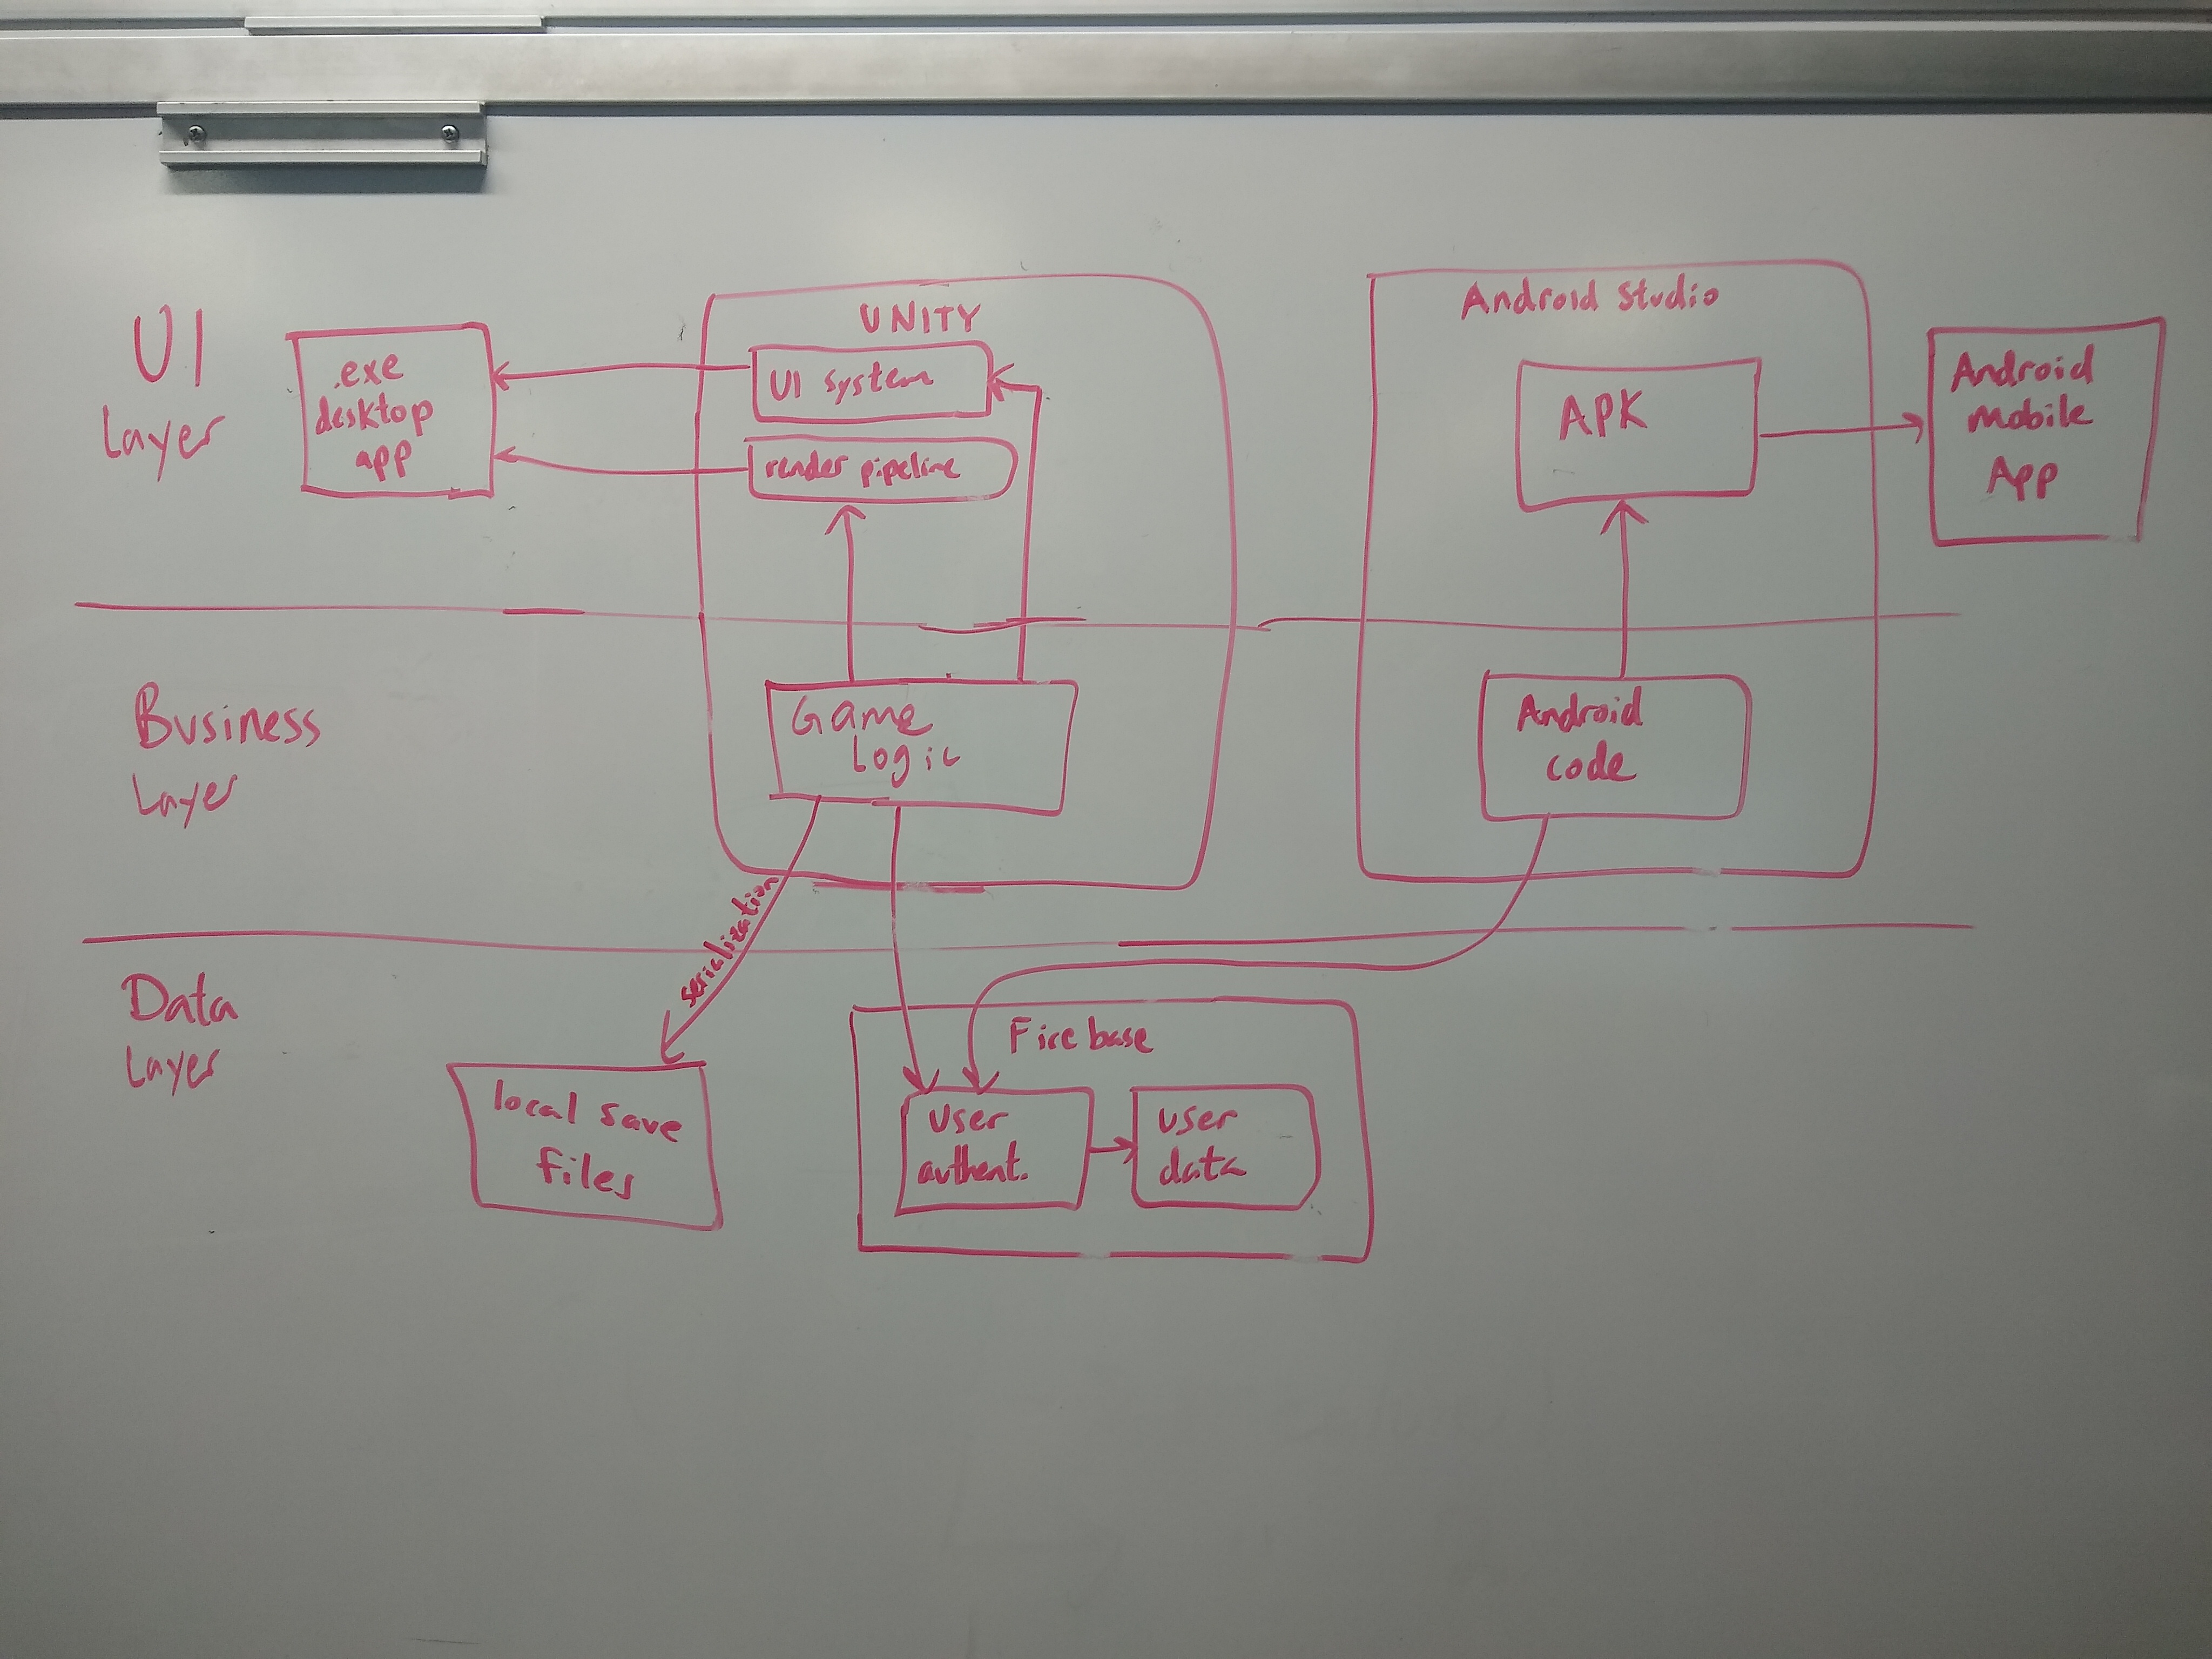 UI
Layer
.exe
desktop
app
UNITY
UI system
render pipeline
Android Studio
APK
Android
mobile
App
Business
Layer
Game
Logic
Android
code
serialization
Data
Layer
local save
files
Firebase
User
authent.
user
data